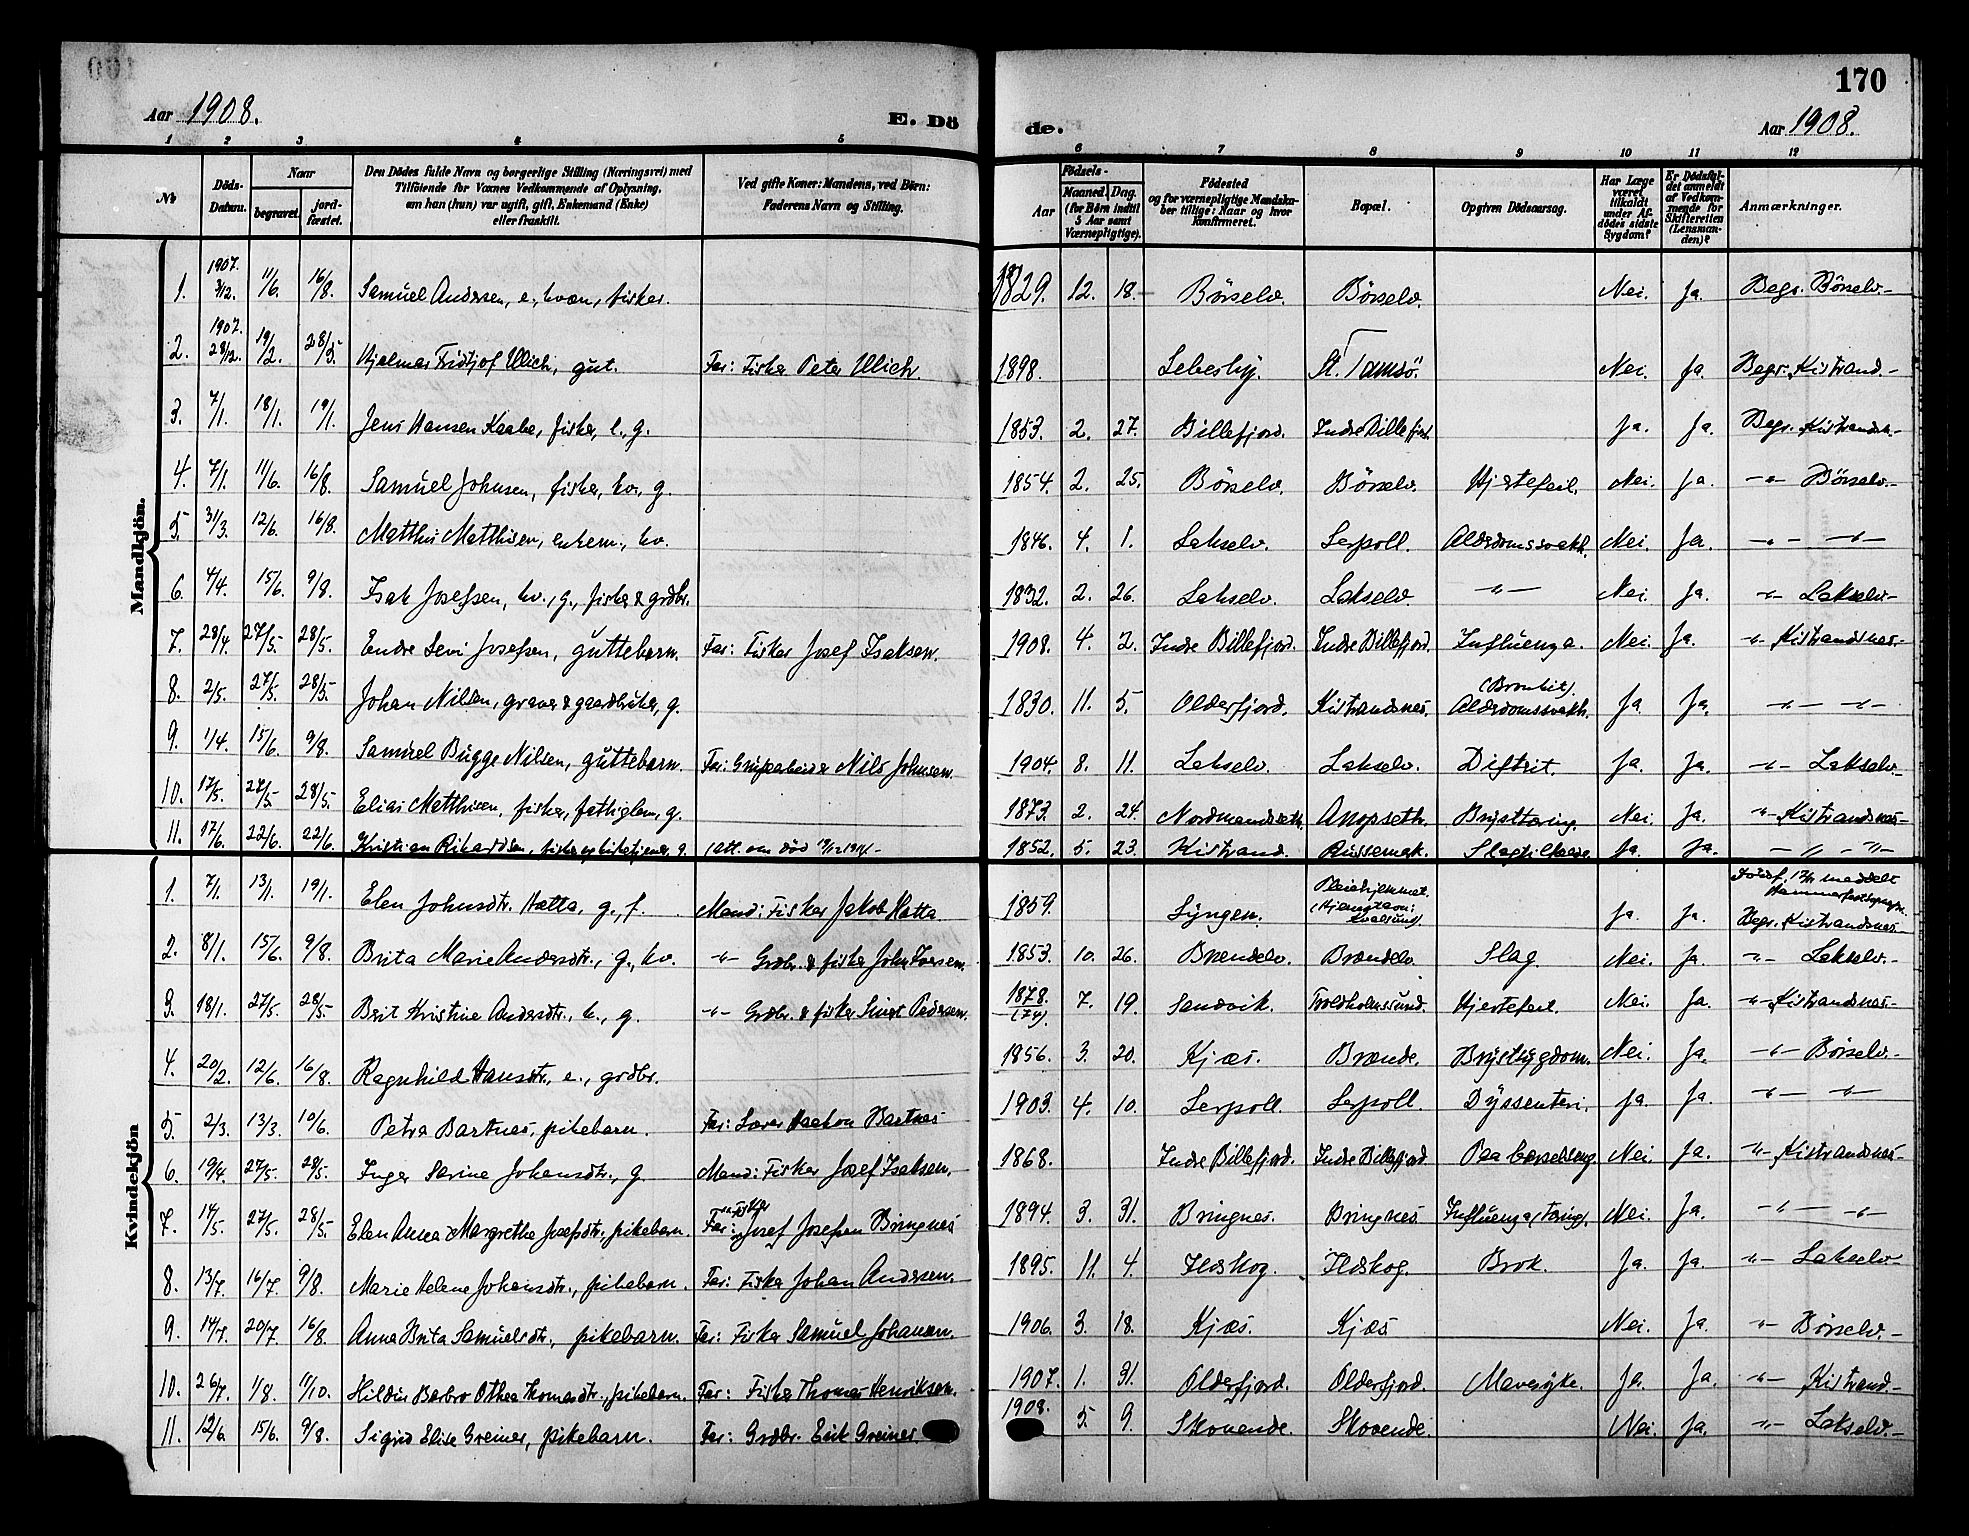 170
Aar 1908.
E. Dö
de.
Aar 1908.
1 2 3 4 5 6 7 8 9 10 11 12
No
Döds-Datum.
Naar
begravet.
jord-fæstet.
Den Dödes fulde Navn og borgerlige Stilling (Næringsvei) med
Tilföiende for Voxnes Vedkommende af Oplysning,
om han (hun) var ugift, gift, Enkemand (Enke)
eller fraskilt.
Ved gifte Koner: Mandens, ved Börn:
Faderens Navn og Stilling.
Födsels-
Aar
Maaned. Dag.
(for Börn indtil
5 Aar samt
Værnepligtige).
Födested
og for værnepligtige Mandska-
ber tillige: Naar og hvor
konfirmeret.
Bopæl.
Opgiven Dödsaarsag.
Har Læge
været
tilkaldt
under Af-
dödes sidste
Sygdom?
Er Dödsfal-
det anmeldt
af Vedkom-
mende for
Skifteretten
(Lensman-
den)?
Anmærkninger.
Mandkjön.
1. 1907. 3/12. 11/6. 16/8. Samuel Andersen, e, kvæn, fisker. 1829. 12. 18. Börselv. Börselv. Nei. Ja. Begr. Börselv.
2. 1907. 28/12. 19/2. 28/5. Hjalmar Fridtjof Ulich, gut. Far: Fisker Peter Ulich. 1898. Lebesby. St. Tamsö. Nei. Ja. Begr. Kistrand.
3. 7/1. 18/1. 19/1. Jens Hansen Kaabe, fisker, l., g. 1853. 2. 27. Billefjord. Indre Billefjord. Ja. Ja. Begr. Kistrandsn.
4. 7/1. 11/6. 16/8. Samuel Johnsen, fisker, kv., g. 1854. 2. 25. Börselv. Börselv. Hjertefeil. Nei. Ja. -"- Börselv.
5. 31/3. 12/6. 16/8. Matthis Matthisen, enkem., kv. 1846. 4. 1. Lakselv. Lerpoll. Alderdomssvakh. Nei. Ja. -"- -"-
6. 4/4. 15/6. 9/8. Isak Josefsen, kv., g., fisker & grdbr. 1832. 2. 26. Lakselv. Lakselv. -"- Nei. Ja. -"- Lakselv.
7. 28/4. 27/5. 28/5. Endre Levi Josefsen, guttebarn. Far: Fisker Josef Isaksen. 1908. 4. 2. Indre Billefjord. Indre Billefjord. Influenza. Nei. Ja. -"- Kistrandsnes.
8. 2/5. 27/5. 28/5. Johan Nilsen, graver & gaardbruker, g. 1830. 11. 5. Olderfjord. Kistrandsnes. (Bronkit). Alderdomssvakh. Ja. Ja. -"- -"-
9. 1/4. 15/6. 9/8. Samuel Bugge Nilsen, guttebarn. Far: Grubearbeider Nils Johnsen. 1904. 8. 11. Lakselv. Lakselv. Diftrit. Ja. Ja. -"- Lakselv.
10. 17/5. 27/5. 28/5. Elias Matthisen, fisker, fattiglem, g. 1873. 2. 24. Nordmandsseth. Anopseth. Brysttæring. Nei. Ja. -"- Kistrandsnes.
11. 17/6. 22/6. 22/6. Kristian Rikardsen, fisker og kirketjener, g. 1852. 5. 23. Kistrand. Russemak. Slagtilfælde. Ja. Ja. -"- -"-
Kvindekjön
1. 7/1. 13/1. 19/1. Elen Johnsdtr. Hætta, g., f. Mand: Fisker Jakob Hætta. 1859. Lyngen. Pleiehjemmet. (Hjemstavn: Kvalsund). Ja. Ja. Begr. Kistrandsnes.
2. 8/1. 15/6. 9/8. Brita Marie Andersdtr., g., kv. -"- Grdbr. & fisker John Iversen. 1853. 10. 26. Brændelv. Brændelv. Slag. Nei. Ja. -"- Lakselv.
3. 18/1. 27/5. 28/5. Berit Kristine Andersdtr., l., g. -"- Grdbr. & fisker Simet Pedersen. 1878. (74). 7. 19. Sandvik. Troldholmssund. Hjertefeil. Nei. Ja. -"- Kistrandsnes.
4. 20/2. 12/6. 16/8. Ragnhild Hansdtr., e., grdbr. 1856. 3. 20. Kjæs. Brænde. Brystsygdom. Nei. Ja. -"- Börselv.
5. 2/3. 13/3. 10/6. Petra Bartnes, pikebarn. Far: Lærer Haakon Bartnes 1903. 4. 10. Lerpoll. Lerpoll. Dyssenteri. Ja. Ja. -"- -"-
6. 19/4. 27/5. 28/5. Inger Serine Johansdtr., g. Mand: Fisker Josef Isaksen. 1868. Indre Billefjord. Indre Billefjord Paa barselseng. Nei. Ja. -"- Kistrandsnes.
7. 14/5. 27/5. 28/5. Elen Anna Margrethe Josefsdtr., pikebarn. Far: Fisker Josef Josefsen Bringnes 1894. 3. 31. Bringnes. Bringnes Influenza (Tæring). Nei. Ja. -"- -"-
8. 13/7. 16/7. 9/8. Marie Helene Johansdtr., pikebarn. Far: Fisker Johan Andersen. 1895. 11. 4. Ildskog. Ildskog. Brok. Ja. Ja. -"- Lakselv.
9. 14/7. 20/7. 16/8. Anna Brita Samuelsdtr., pikebarn. Far: Fisker Samuel Johansen. 1906. 3. 18. Kjæs. Kjæs Nei. Ja. -"- Börselv.
10. 26/7. 1/8. 11/10. Hildur Barbro Othea Thomasdtr., pikebarn. Far: Fisker Thomas Henriksen. 1907. 1. 31. Olderfjord. Olderfjord. Mavesyke. Ja. Ja. -"- Kistrand.
11. 12/6. 15/6. 9/8. Sigrid Elise Greiner, pikebarn. Far: Grdbr. Erik Greiner. 1908. 5. 9. Skovende. Skovende. Nei. Ja. -"- Lakselv.